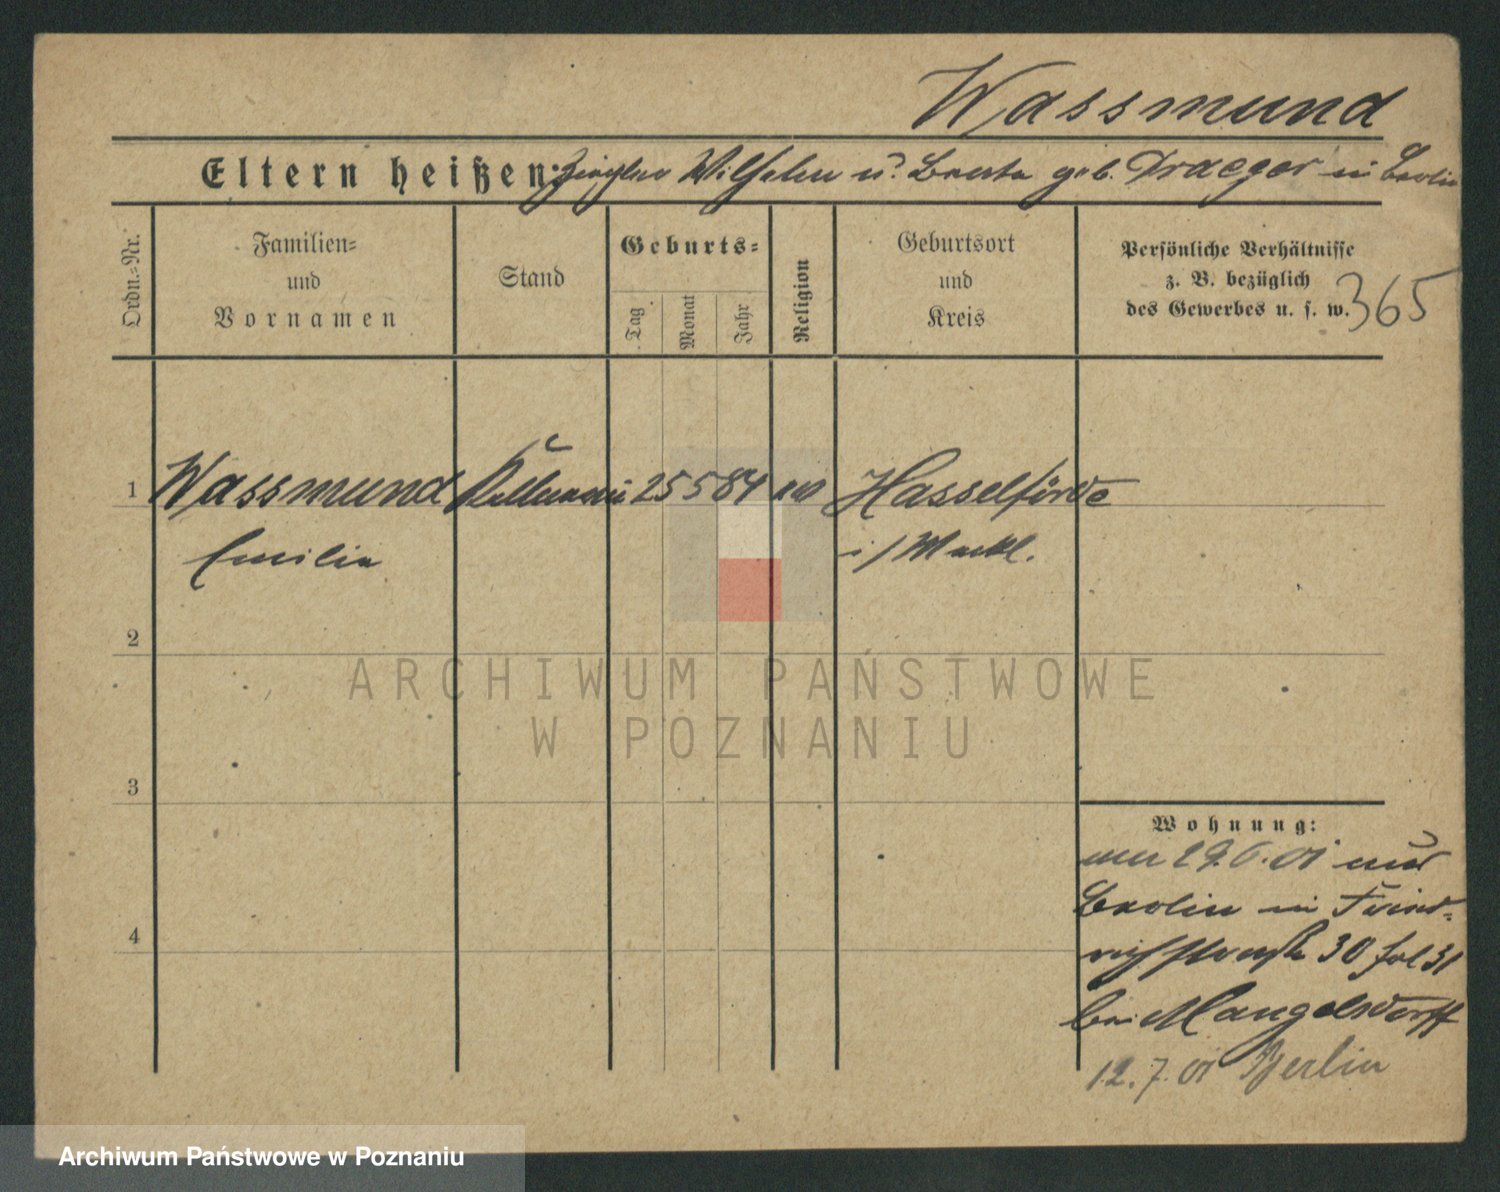 Wassmund
Eltern heißen: Ziegler Wilhelm u. Berta geb. Draeger in Berlin
Ordn.-Nr.
Familien-
und
Vornamen
Stand
Geburts-
Tag
Monat
Jahr
Religion
Geburtsort
und
Kreis
Persönliche Verhältnisse
z. B. bezüglich
des Gewerbes u. s. w.
365
1 Wassmund Kellnerin 25 5 84 ev Hasselförde
Emilie i/Meckl.
2
3
4
Wohnung:
29.6.01 aus
Berlin in Fried-
richstraße 30 fol 31
bei Mangelsdorff
12.7.01 Berlin
ARCHIWUM PAŃSTWOWE
W POZNANIU
Archiwum Państwowe w Poznaniu